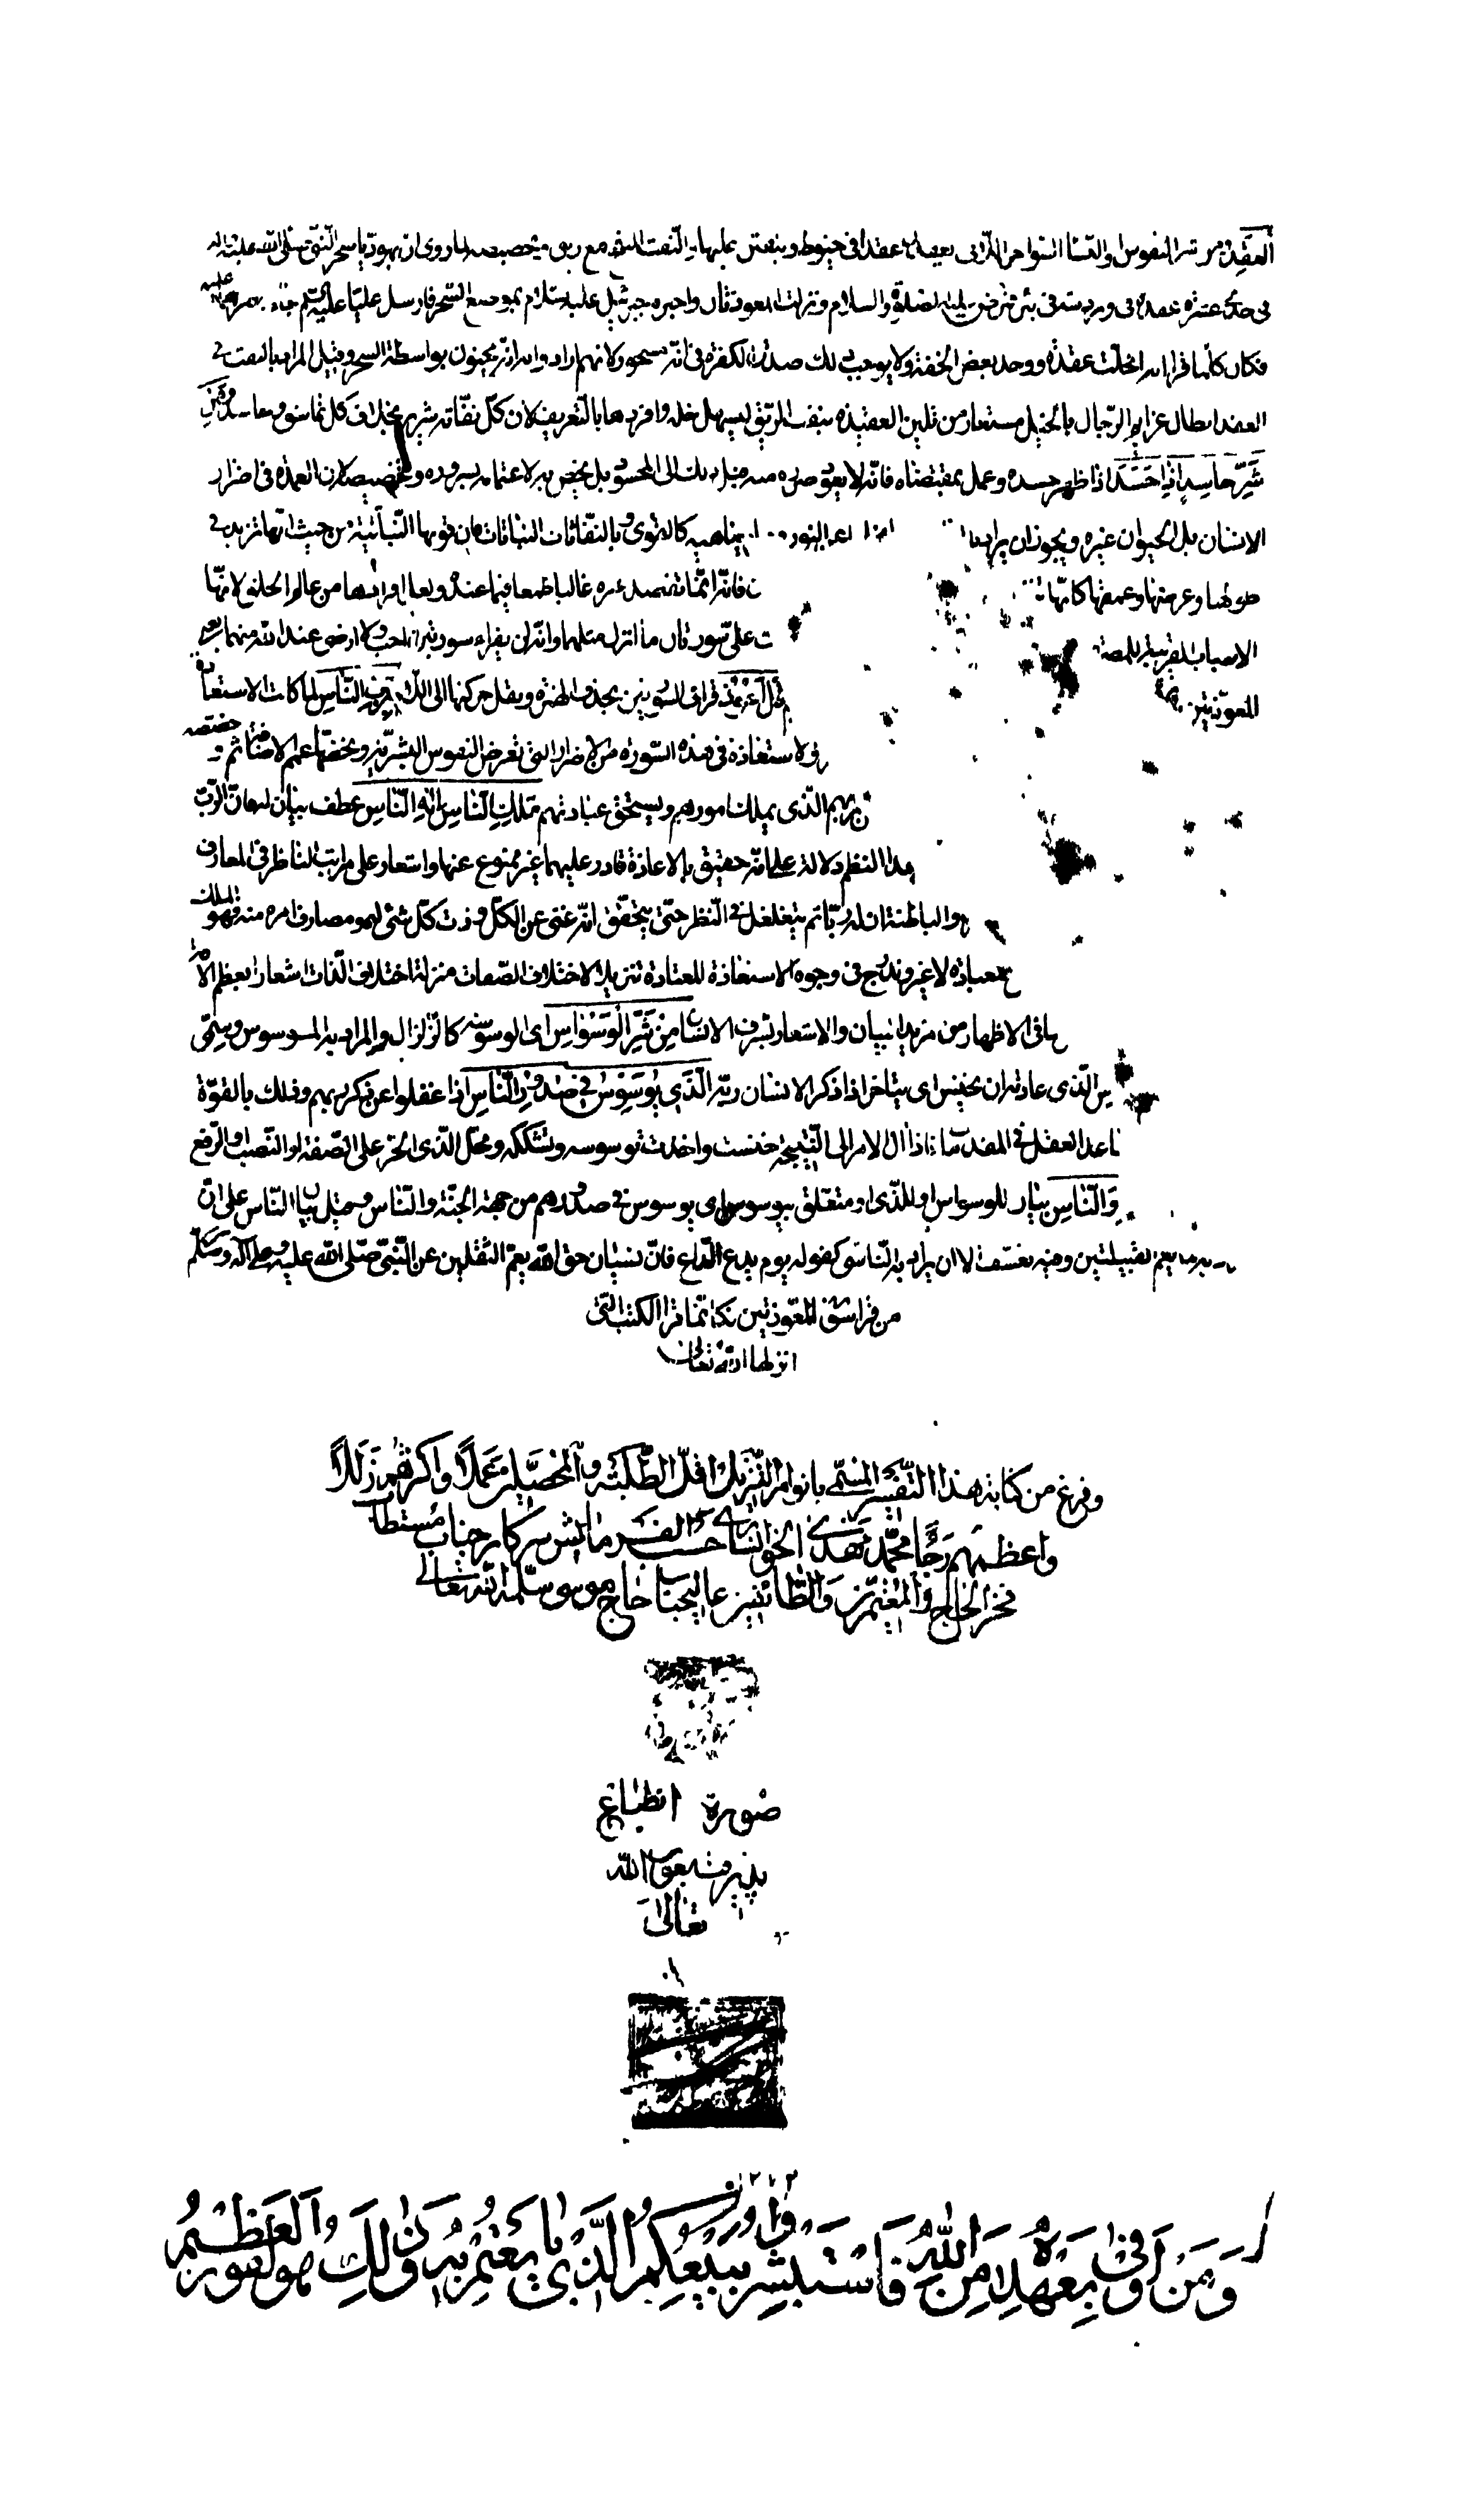 العقد من شر النفوس او النساء السواحر اللاتي يعقدن عقدا في خيوط وينفثن عليها والنفث النفخ مع ريق وتخصيصه لما روى ان يهوديا سحر النبي صلى الله عليه واله
في احدى عشرة عقدة في وتر دسه في بئر فمرض عليه الصلوة والسلام ونزلت المعوذتان واخبره جبرئيل عليه السلام بموضع السحر فارسل عليا عليه السلم فجاء به فقراهما عليه
فكان كلما قرا اية انحلت عقدة ووجد بعض الخفة ولا يوجب ذلك صدق الكفرة في انه مسحور لانهم ارادوا به انه مجنون بواسطة السحر وقيل المراد بالنفث في
العقد ابطال عزايم الرجال بالحيل مستعار من تليين العقدة بنفث الريق ليسهل حلها وافردها بالتعريف لان كل نفاثة شريرة بخلاف كل غاسق وحاسد ومن
شر حاسد اذا حسد اذا ظهر حسده وعمل بمقتضاه فانه لا يعود ضرره منه قبل ذلك الى المحسود بل يخص به لاغتمامه بسروره وتخصيصه لانه العمدة في اضرار
الانسان بل الحيوان غيره ويجوز ان يراد
النور يضاهيه كالقوى وبالنفاثات النباتات فان قوتها النباتية من حيث انها تزيد في
طولها وعرضها وعمقها كانها
فانه انما يقصد غيره غالبا طمعا فيما عنده ولعل افرادها من عالم الخلق لانها
الاسباب القريبة للمضرة
على سورتان ما انزل مثلهما وانه لن يقرا سورتين احب ولا ارضى عند الله منهما يعني
المعوذتين
قل اعوذ قرئ في السورتين بحذف الهمزة ونقل حركتها الى اللام برب الناس لما كانت الاستعاذة
والاستعاذة في هذه السورة من الاضرار التي تعرض النفوس البشرية ويخصها عمم الاضافة ثم وخصصه
ربهم الذي يملك امورهم ويستحق عبادتهم ملك الناس اله الناس عطف بيان له فان الرب
هذا النظم دلالة على انه حقيق بالاعاذة قادر عليها غير ممنوع عنها واشعار على مراتب الناظر في المعارف
والباطنة ان له ربا ثم يتغلغل في النظر حتى يتحقق انه غني عن الكل وذات كل شئ له ومصارف امره منه فهو الملك
للعبادة لا غير وتدرج في وجوه الاستعاذة المعتادة تنزيلا لاختلاف الصفات منزلة اختلاف الذات اشعارا بعظم الافة
ما في الاظهار من مزيد البيان والاشعار بشرف الانسان من شر الوسواس اى الوسوسة كالزلزال والمراد به الموسوس وسمي
الذي عادته ان يخنس اى يتاخر اذا ذكر الانسان ربه الذي يوسوس في صدور الناس اذا غفلوا عن ذكر ربهم وذلك بالقوة
تساعد العقل في المقدمات فاذا ال الامر الى النتيجة خنست واخذت توسوسه وتشككه ومحل الذي الجر على الصفة او النصب او الرفع
والناس بيان للوسواس او للذي او متعلق بيوسوس اى يوسوس في صدورهم من جهة الجنة والناس وقيل بيان الناس على ان
به ما يعم القبيلتين وفيه تعسف الا ان يراد به الناسي كقوله يوم يدع الداع فان نسيان حق الله يعم الثقلين عن النبي صلى الله عليه وعلى اله وسلم
من قرا المعوذتين فكانما قرا الكتب التي
انزلها الله تعالى
وفرغ من كتابة هذا التفسير المسمى بانوار التنزيل اقل الطلبة والمحصلين عملا واكثرهم زللا
واعظمهم رجا محمد مهدي الخوانساري حسب الفرمايش سركار جناب مستطاب
فخر الحاج والمعتمرين والطائفين عاليجناب حاج موسى سلمه الله تعالى
صورة انطباع
پذيرفت بعون الله
تعالى
ومن اوفى بعهده من الله فاستبشروا ببيعكم الذي بايعتم به وذلك هو الفوز العظيم